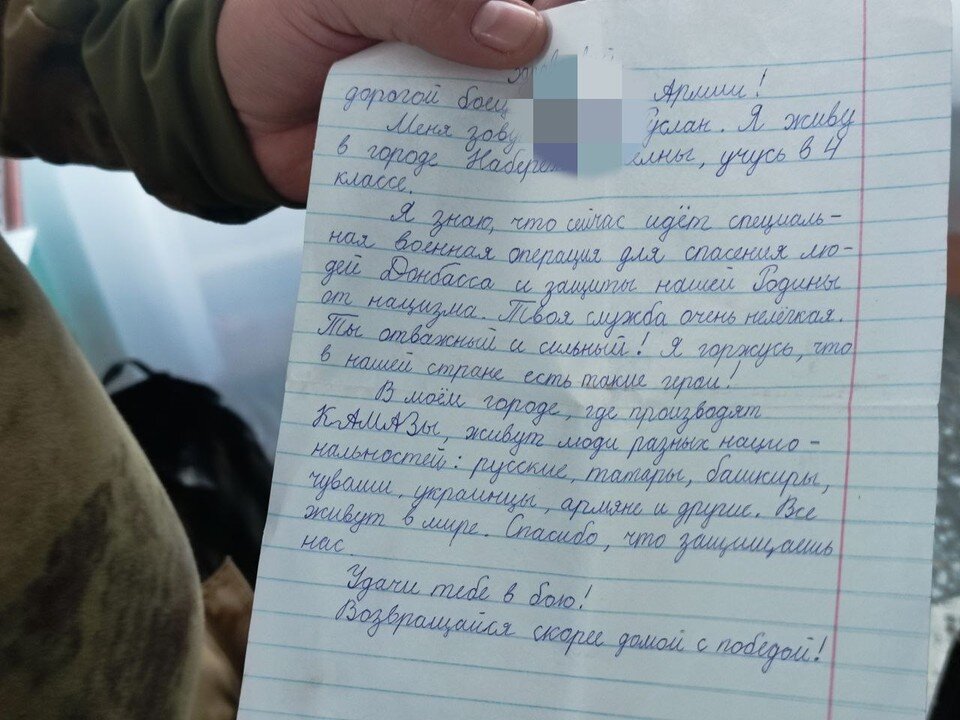 дорогой боец Армии!
Меня зову Руслан. Я живу
в городе Набереж елны, учусь в 4
классе.
Я знаю, что сейчас идёт специаль-
ная военная операция для спасения лю-
дей Донбасса и защиты нашей Родины
от нацизма. Твоя служба очень нелёгкая.
Ты отважный и сильный! Я горжусь, что
в нашей стране есть такие герои!
В моём городе, где производят
КАМАЗы, живут люди разных нацио-
нальностей: русские, татары, башкиры,
чуваши, украинцы, армяне и другие. Все
живут в мире. Спасибо, что защищаешь
нас.
Удачи тебе в бою!
Возвращайся скорее домой с победой!